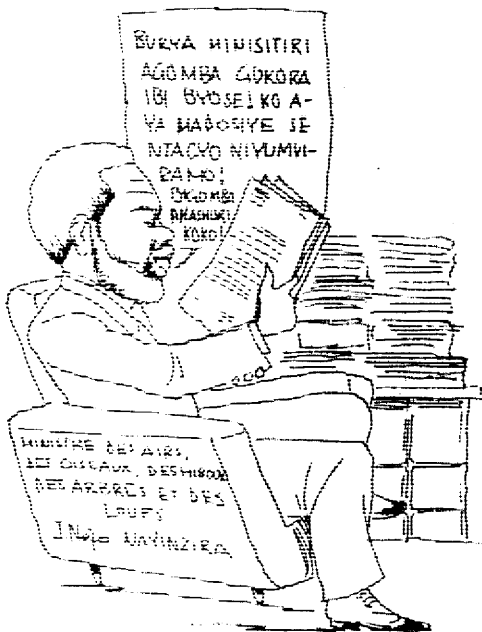 BURYA MINISITIRI
AGOMBA GUKORA
IBI BYOSE! KO A-
YA MADOSIYE SE
NTACYO NIYUMVI-
RAMO!
KOKO!
MINISTRE DES AIRS,
DES OISEAUX, DES HIBOUX
DES ARBRES ET DES
LOUPS
NAYINZIRA